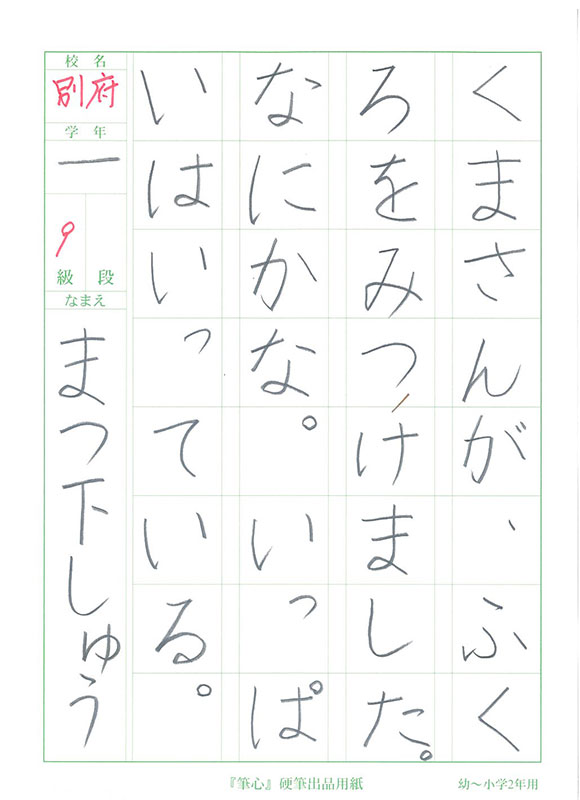 くまさんが、ふく
ろをみつけました。
なにかな。いっぱ
いはいっている。
校名
別府
学年
一
9
級 段
なまえ
まつ下しゅう
『筆心』硬筆出品用紙
幼～小学2年用